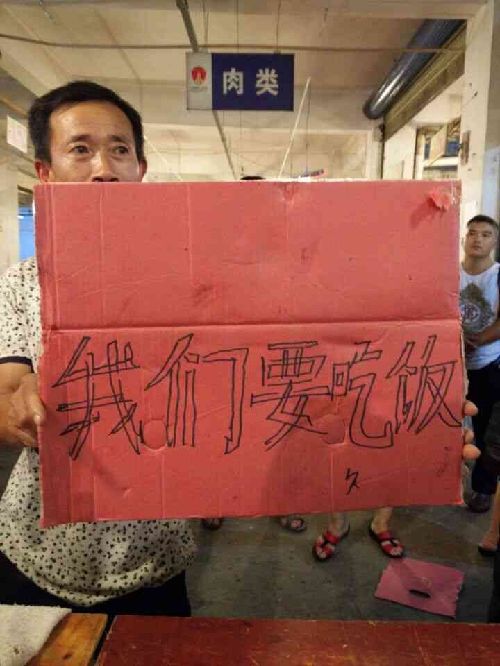 肉类
我们要吃饭
久